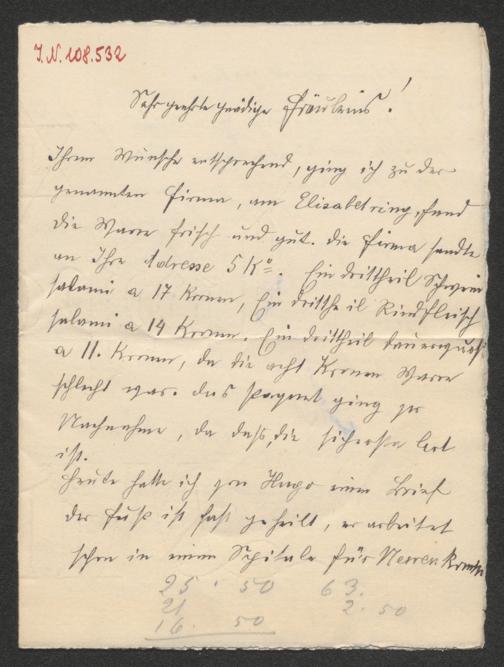 I.N. 108.532
Sehr geehrte gnädige Fräuleins!
Ihrem Wunsche entsprechend, ging ich zu der
genannten Firma, am Elisabetring, fand
die Ware frisch und gut. Die Firma sandte
an Ihre Adresse 5 Ko. Ein drittheil Schwein
salami a 17 Kronen, Ein drittheil Rindfleisch
salami a 14 Kronen. Ein drittheil dauerwurst
a 11. Kronen, da die acht Kronen Ware
schlecht war. das Paquet ging per
Nachnahme, da dass, die sicherste Art
ist.
Heute hatte ich von Hugo einen Brief
der Fuß ist fast geheilt, er arbeitet
schon in einem Spitale für Nervenkranke
25 . 50 63.
21 2. 50
16. 50